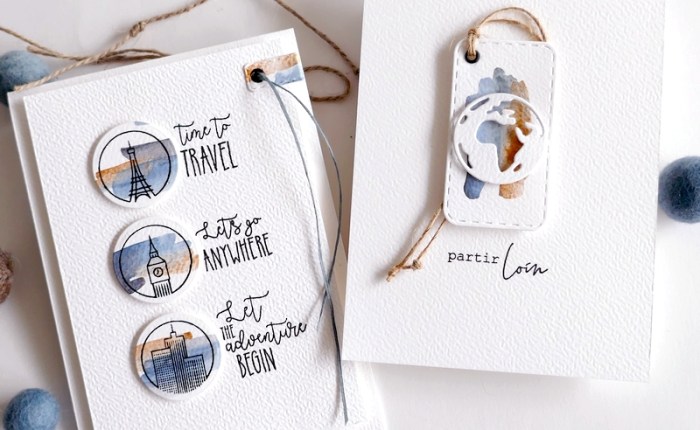 time to
TRAVEL
Let's go
ANYWHERE
Let
THE
adventure
BEGIN
partir loin